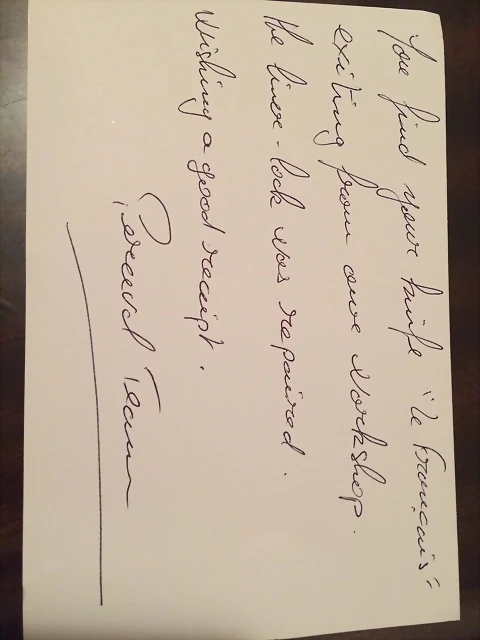 You find your knife "Le Français"
exiting from ouve workshop.
The liner-lock was repaired.
Wishing a good receipt.
Perceval Team